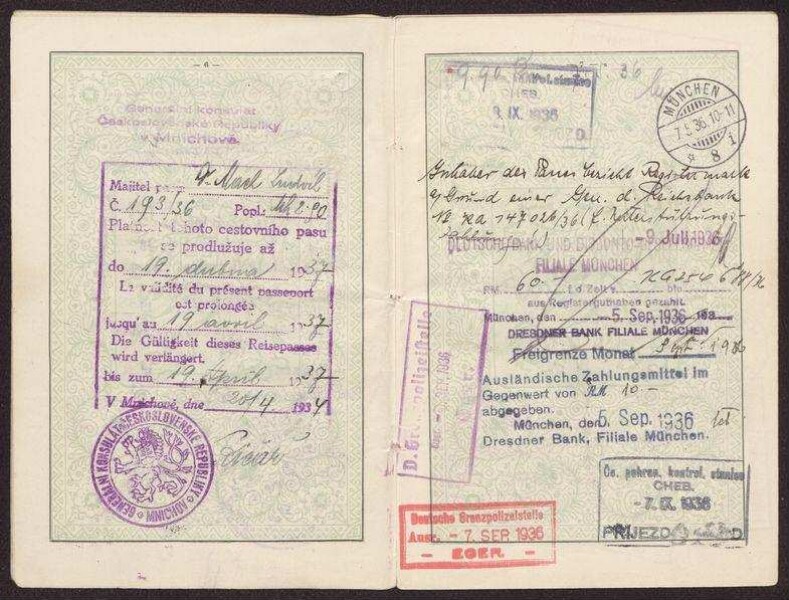 Generální konsulát
Československé Republiky
v Mnichově.
Majitel pasu Dr Mach Ludvík
Č. 193/36 Popl. Kč 2.90
Platnost tohoto cestovního pasu
se prodlužuje až
do 19. dubna 1937
La validité du présent passeport
est prolongée
jusqu'au 19 avril 1937
Die Gültigkeit dieses Reisepasses
wird verlängert
bis zum 19. April 1937
V Mnichově, dne 20/4 193
GENERÁLNÍ KONSULÁT ČESKOSLOVENSKÉ REPUBLIKY
MNICHOV
CHEB
9. IX. 1936
MÜNCHEN
7.5.36.10-11
8 i
Inhaber des Passes bezieht Registermark
auf Grund einer Gen. d. Reichsbank
DEUTSCHE BANK UND DISCONTO-
9. Juli 1936
FILIALE MÜNCHEN
RM 60.-
aus Registerguthaben gezahlt.
München, den 5. Sep. 1936 193
DRESDNER BANK FILIALE MÜNCHEN
Freigrenze Monat Sept. 1936
Ausländische Zahlungsmittel im
Gegenwert von RM 10.-
abgegeben.
München, d. 5. Sep. 1936
Dresdner Bank, Filiale München.
D. Grenzpolizeistelle
1936
Čs. pohran. kontrol. stanice
CHEB.
-7. IX. 1936
PŘÍJEZD
Deutsche Grenzpolizeistelle
Ausr. - 7. SEP. 1936
- EGER. -